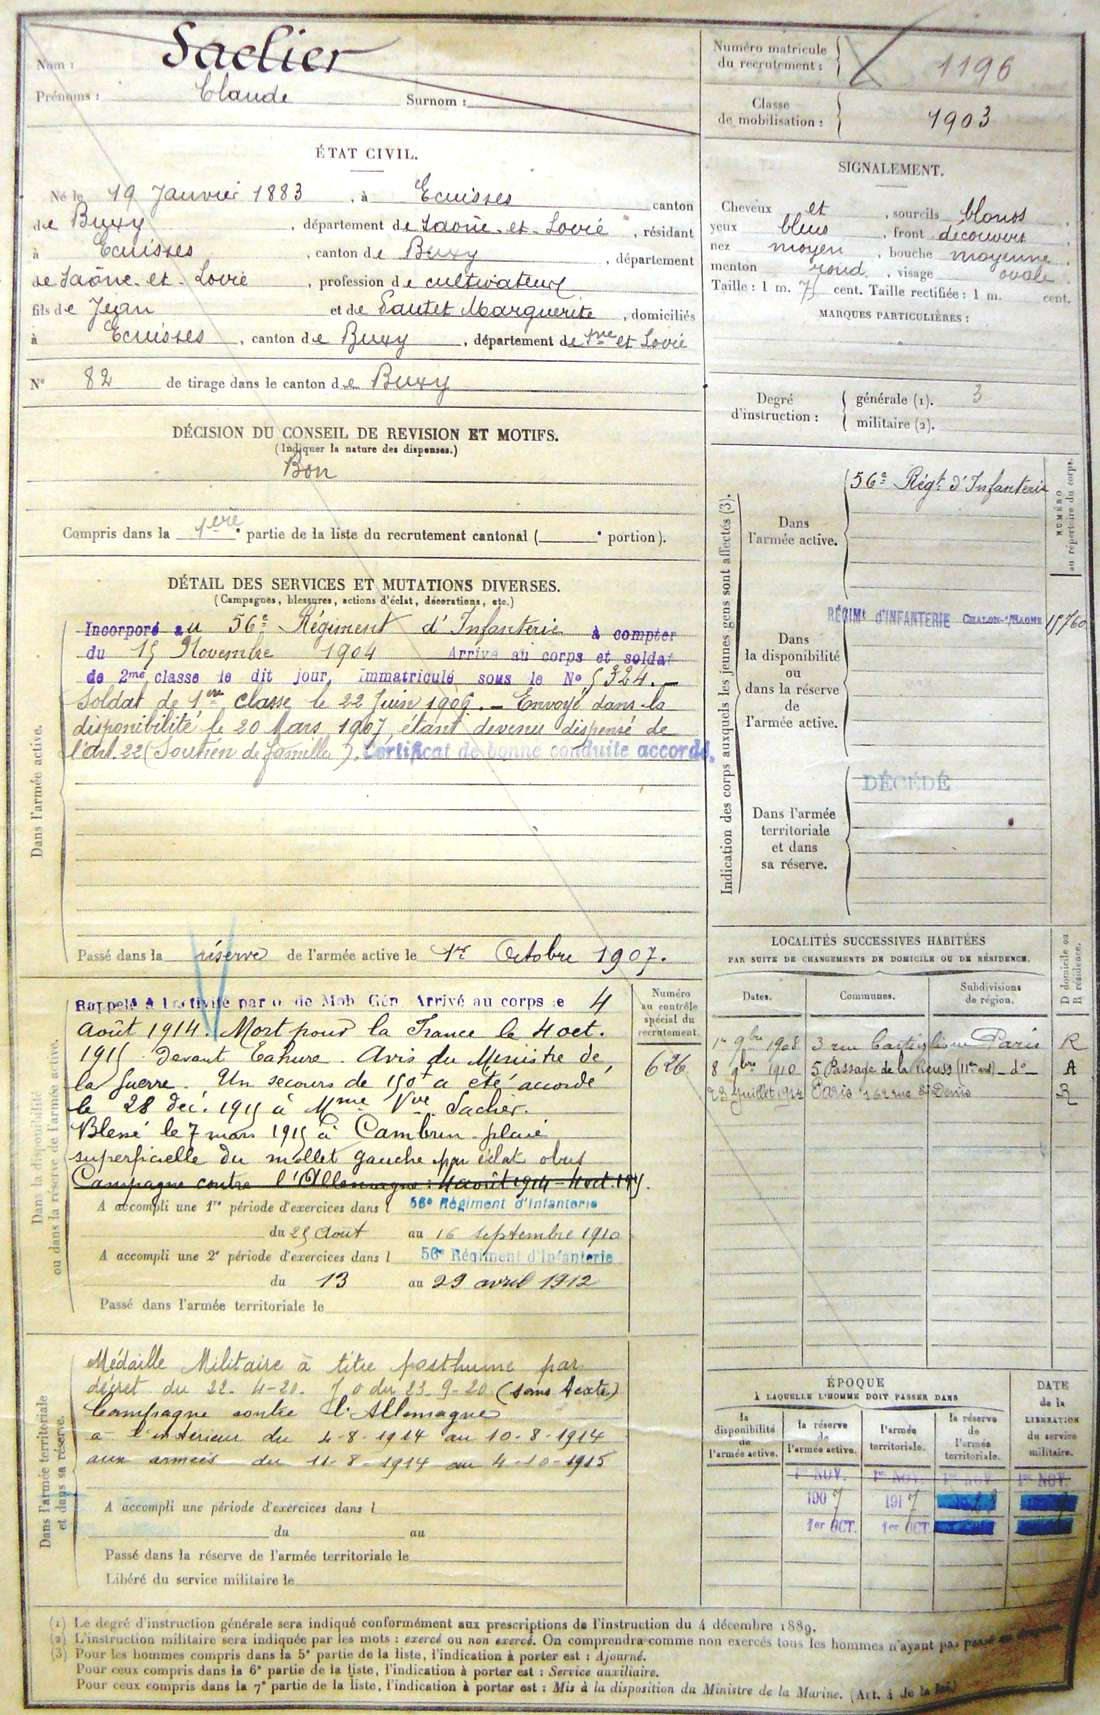 Nom : Saclier
Prénoms : Claude Surnom :
Numéro matricule du recrutement : 1196
Classe de mobilisation : 1903
ÉTAT CIVIL.
Né le 19 Janvier 1883, à Ecuisses canton
de Buxy, département de Saône-et-Loire, résidant
à Ecuisses, canton de Buxy, département
de Saône-et-Loire, profession de cultivateur
fils de Jean et de Pautet Marguerite, domiciliés
à Ecuisses, canton de Buxy, département de Sne et Loire
N° 82 de tirage dans le canton de Buxy
SIGNALEMENT.
Cheveux et, sourcils blonds,
yeux bleus, front découvert
nez moyen, bouche moyenne,
menton rond, visage ovale.
Taille : 1 m. 71 cent. Taille rectifiée : 1 m. cent.
MARQUES PARTICULIÈRES :
Degré d'instruction : générale (1). 3
militaire (2).
DÉCISION DU CONSEIL DE REVISION ET MOTIFS.
(Indiquer la nature des dispenses.)
Bon
Compris dans la 1ère partie de la liste du recrutement cantonal ( portion).
DÉTAIL DES SERVICES ET MUTATIONS DIVERSES.
(Campagnes, blessures, actions d'éclat, décorations, etc.)
Dans l'armée active.
Incorporé au 56e Régiment d'Infanterie à compter
du 15 Novembre 1904 Arrivé au corps et soldat
de 2me classe le dit jour, immatriculé sous le N° 5324. —
Soldat de 1ère classe le 22 Juin 1906. — Envoyé dans la
disponibilité le 20 Mars 1907, étant devenu dispensé de
l'Art. 22 (Soutien de famille). Certificat de bonne conduite accordé.
Passé dans la réserve de l'armée active le 1er Octobre 1907.
Indication des corps auxquels les jeunes gens sont affectés (3).
NUMÉRO au répertoire du corps.
Dans l'armée active.
56e Régt d'Infanterie
Dans la disponibilité ou dans la réserve de l'armée active.
RÉGIMt D'INFANTERIE CHALON-S/SAONE
Dans l'armée territoriale et dans sa réserve.
DÉCÉDÉ
Dans la disponibilité ou dans la réserve de l'armée active.
Rappelé à l'activité par o. de Mob. Gén. Arrivé au corps le 4
août 1914. Mort pour la France le 4 oct.
1915 devant Tahure. Avis du Ministre de
la guerre. Un secours de 150f a été accordé
le 28 déc. 1915 à Mme Vve Saclier.
Blessé le 7 mars 1915 à Cambrin plaie
superficielle du mollet gauche par éclat obus
Campagne contre l'Allemagne : 4 août 1914 - 4 oct. 1915.
A accompli une 1re période d'exercices dans l 56e Régiment d'Infanterie
du 25 Août au 16 septembre 1910
A accompli une 2e période d'exercices dans l 56e Régiment d'Infanterie
du 13 au 29 avril 1912
Passé dans l'armée territoriale le
Numéro au contrôle spécial du recrutement.
626
LOCALITÉS SUCCESSIVES HABITÉES
PAR SUITE DE CHANGEMENTS DE DOMICILE OU DE RÉSIDENCE.
D domicile ou R résidence.
Dates. Communes. Subdivisions de région.
1er 9bre 1908 3 rue Paris R
8 9bre 1910 5 Passage de la (11e arrt) - do - A
23 Juillet 1912 Paris 162 rue St Denis R
Dans l'armée territoriale et dans sa réserve.
Médaille Militaire à titre posthume par
décret du 22-4-20. J.O du 23-9-20 (sans texte)
Campagne contre l'Allemagne
à l'intérieur du 4-8-1914 au 10-8-1914
aux armées du 11-8-1914 au 4-10-1915
A accompli une période d'exercices dans l
du au
Passé dans la réserve de l'armée territoriale le
Libéré du service militaire le
ÉPOQUE
À LAQUELLE L'HOMME DOIT PASSER DANS
la disponibilité de l'armée active.
la réserve de l'armée active.
l'armée territoriale.
la réserve de l'armée territoriale.
DATE de la LIBÉRATION du service militaire.
1er NOV. 1er NOV. 1er NOV. 1er NOV.
1907 1917
1er OCT. 1er OCT.
(1) Le degré d'instruction générale sera indiqué conformément aux prescriptions de l'instruction du 4 décembre 1889.
(2) L'instruction militaire sera indiquée par les mots : exercé ou non exercé. On comprendra comme non exercés tous les hommes n'ayant pas passé
(3) Pour les hommes compris dans la 5e partie de la liste, l'indication à porter est : Ajourné.
Pour ceux compris dans la 6e partie de la liste, l'indication à porter est : Service auxiliaire.
Pour ceux compris dans la 7e partie de la liste, l'indication à porter est : Mis à la disposition du Ministre de la Marine. (Art. 4 de la loi.)